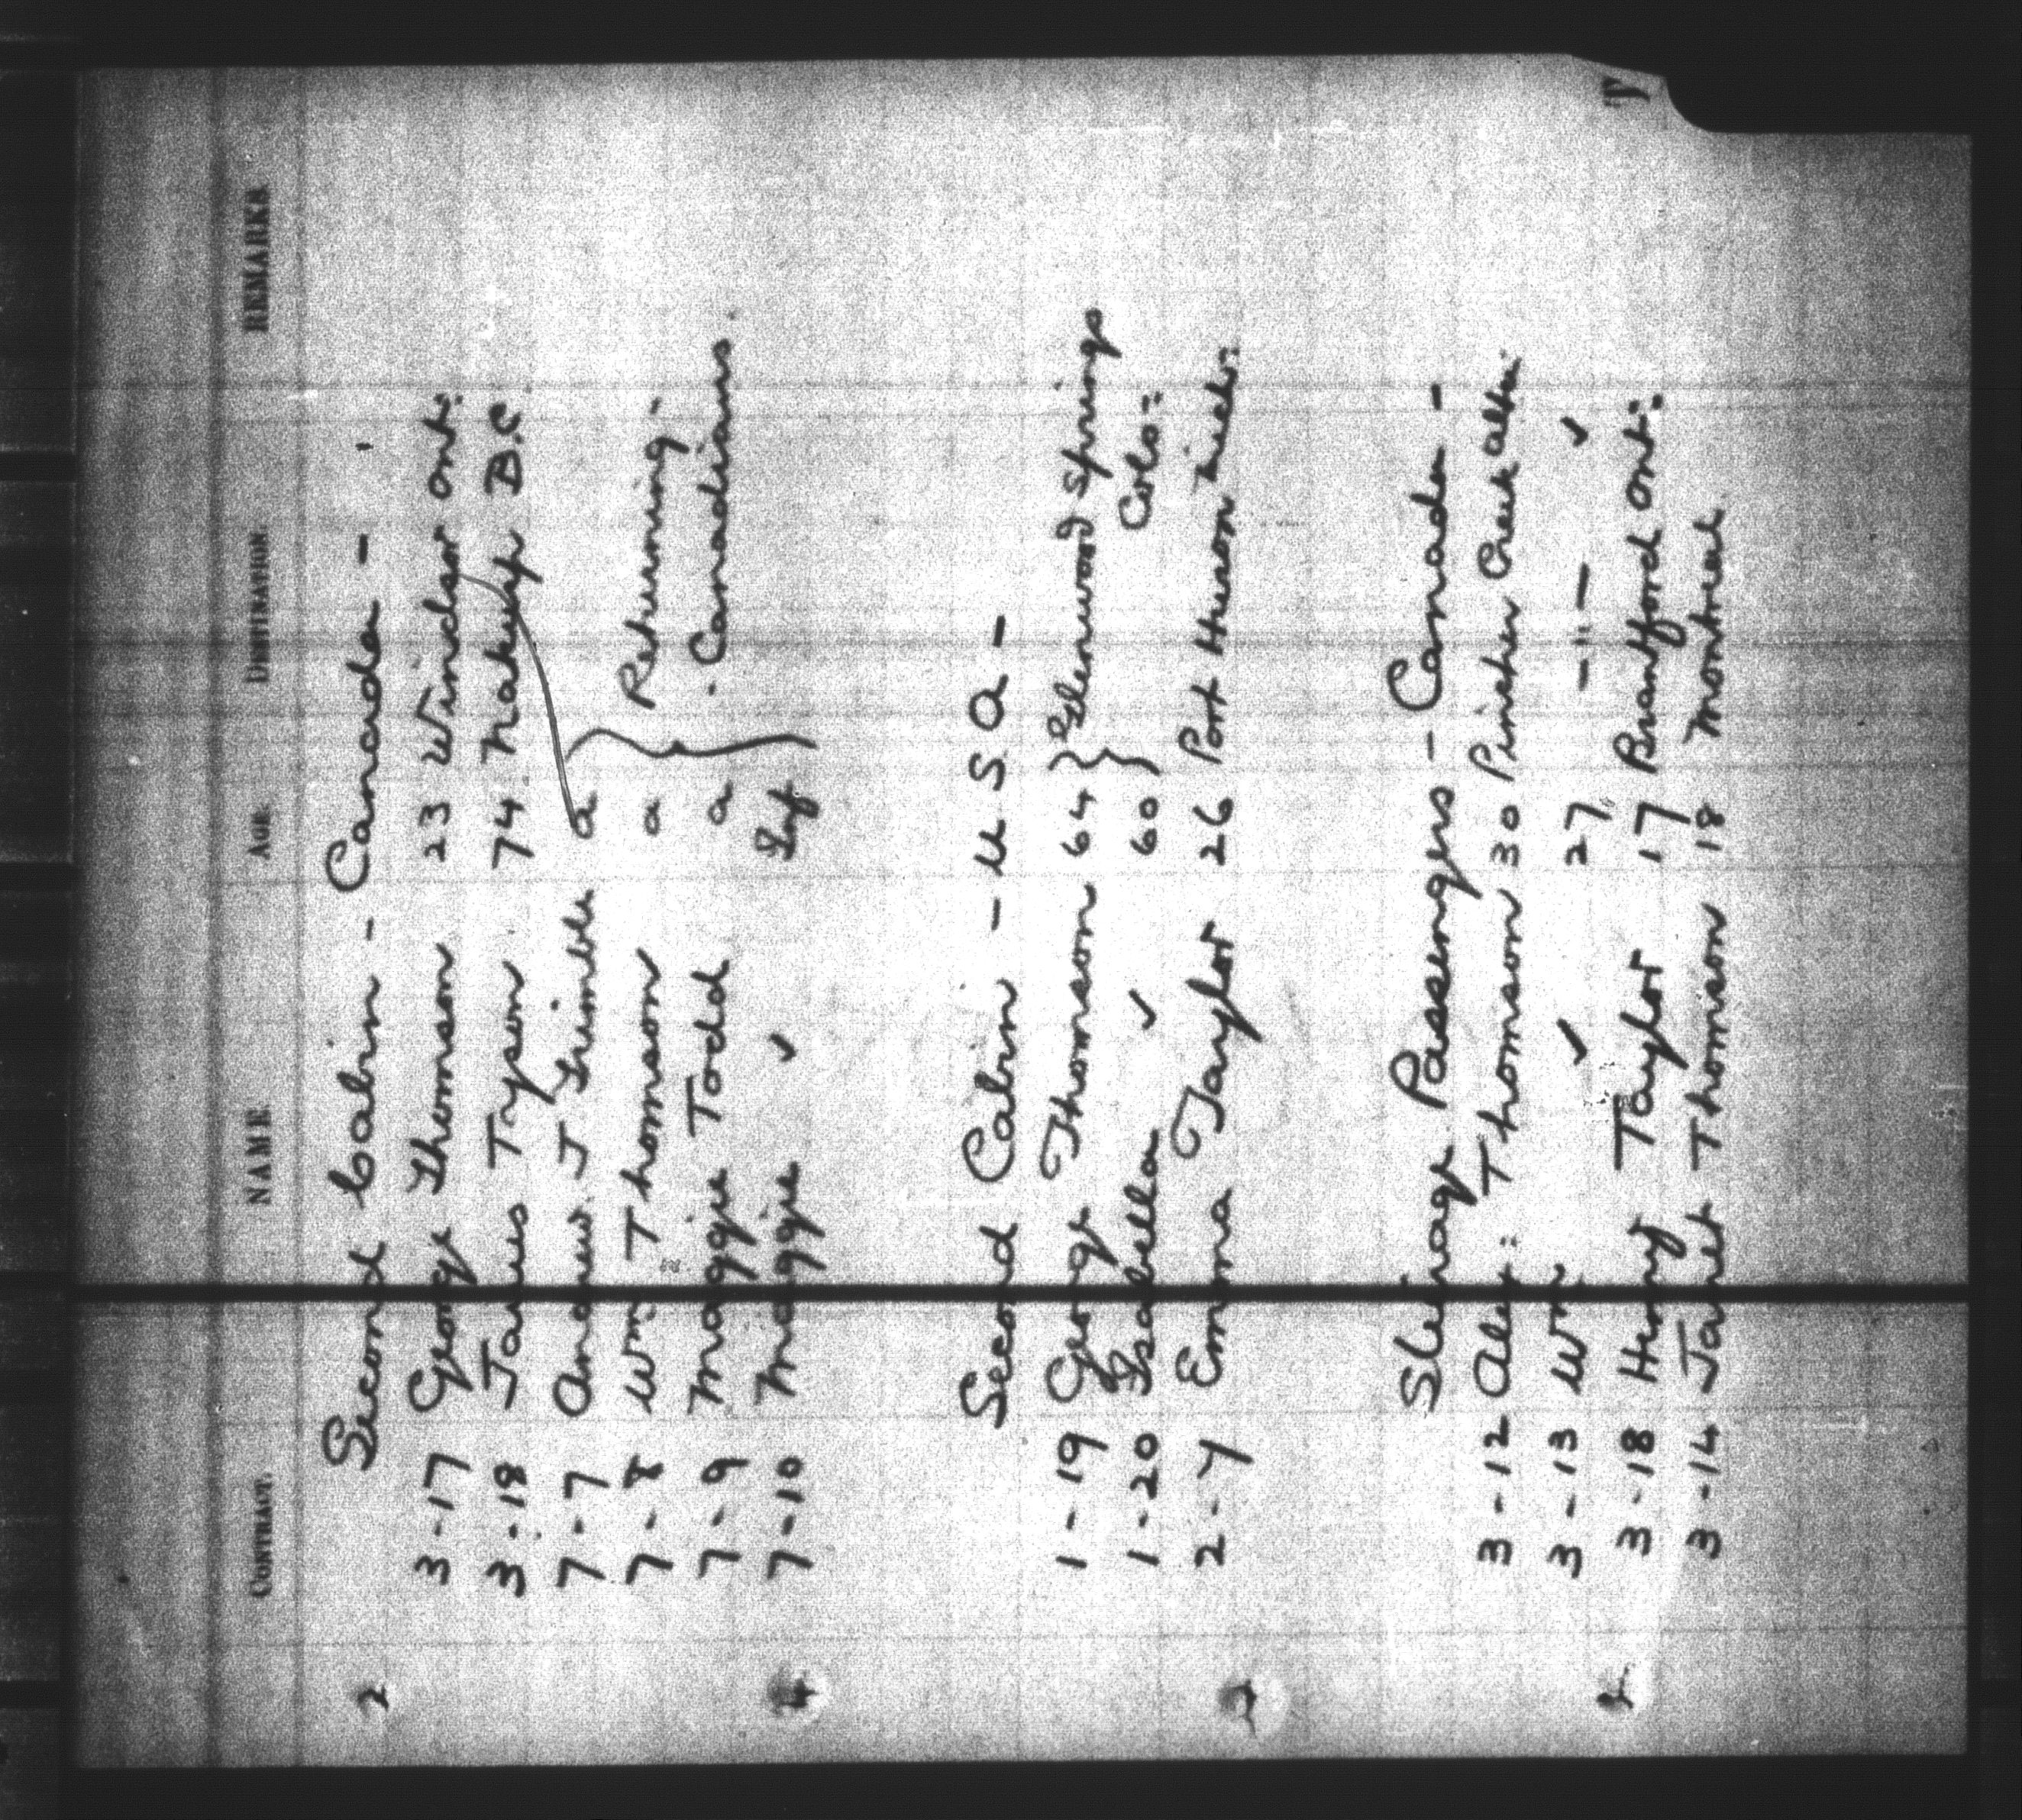 T
CONTRACT. NAME. AGE. DESTINATION. REMARKS
2 Second Cabin - Canada - -
3-17 George Thomson 23 Windsor Ont:
3-18 James Tyson 74 Nakusp B.C.
7-7 Andrew J Trimble a
7-8 Wm Thomson a } Returning -
7-9 Maggie Todd a Canadians.
4 7-10 Maggie ✓ Inf
Second Cabin - U S A -
1-19 George Thomson 64 } Glenwood Springs
1-20 Isabella ✓ 60 Colo:
2-7 Emma Taylor 26 Port Huron Mich:
Steerage Passengers - Canada -
3-12 Alex: Thomson 30 Pincher Creek Alta:
3-13 Wm ✓ 27 -"- ✓
3-18 Henry Taylor 17 Brantford Ont:
3-14 Janet Thomson 18 Montreal